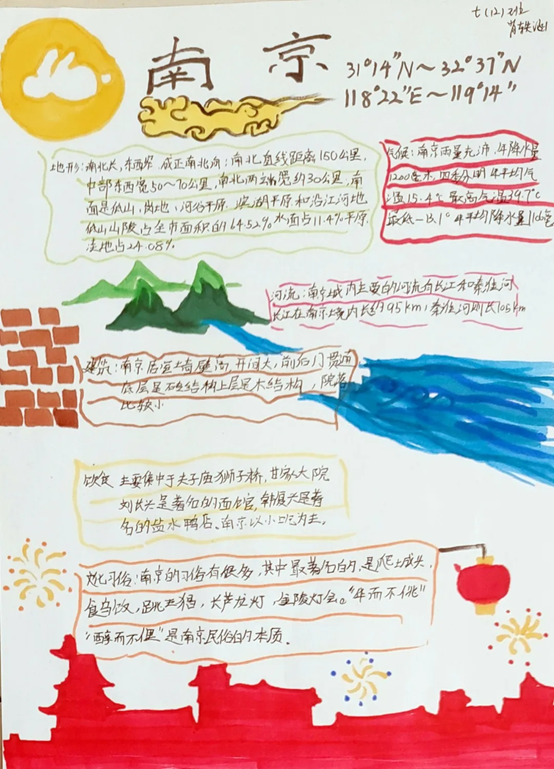 七(12)班
南京
31°14"N～32°37"N
118°22"E～119°14"
地形:南北长,东西窄,成正南北向;南北直线距离150公里,
中部东西宽50～70公里,南北两端宽约30公里,南
面是低山、岗地、河谷平原、滨湖平原和沿江河地
低山丘陵占全市面积的64.52%水面占11.4%平原
洼地占24.08%
气候:南京雨量充沛,年降水量
1200毫米,四季分明年平均气
温15.4℃最高气温39.7℃
河流:南京城内主要的河流有长江和秦淮河
长江在南京境内长约95km,秦淮河则长103km
建筑:南京居室墙壁高,开间大,前后门贯通
底层是砖结构上层是木结构,院落
比较小
饮食 主要集中于夫子庙狮子桥,甘家大院
刘长兴是著名的面馆,韩复兴是著
名的盐水鸭店、南京以小吃为主。
文化习俗:南京的习俗有很多,其中最著名的,是爬上城头,
食乌饭,跳五猖,长芦龙灯,金陵灯会。"华而不佻"
"醇而不俚"是南京民俗的本质.